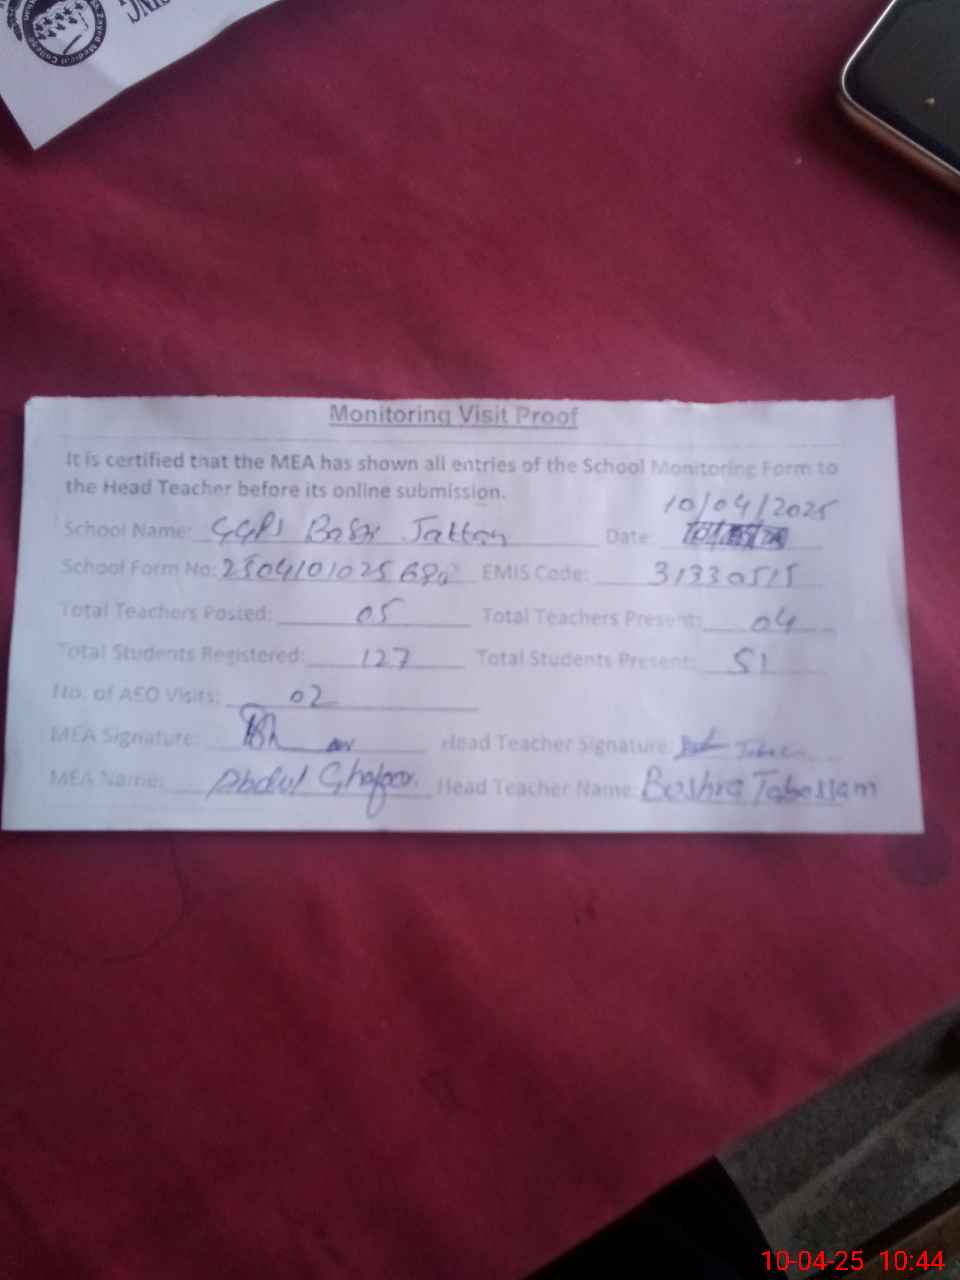 Zayed Medical College
Monitoring Visit Proof
It is certified that the MEA has shown all entries of the School Monitoring Form to
the Head Teacher before its online submission.
10/04/2025
School Name: GGPS Jattan Date:
School Form No: EMIS Code: 31330515
Total Teachers Posted: 05 Total Teachers Present: 04
Total Students Registered: 127 Total Students Present: 51
No. of AEO Visits: 02
MEA Signature: Head Teacher Signature:
MEA Name: Abdul Ghafoor. Head Teacher Name: Boshra Tabassam
10-04-25 10:44